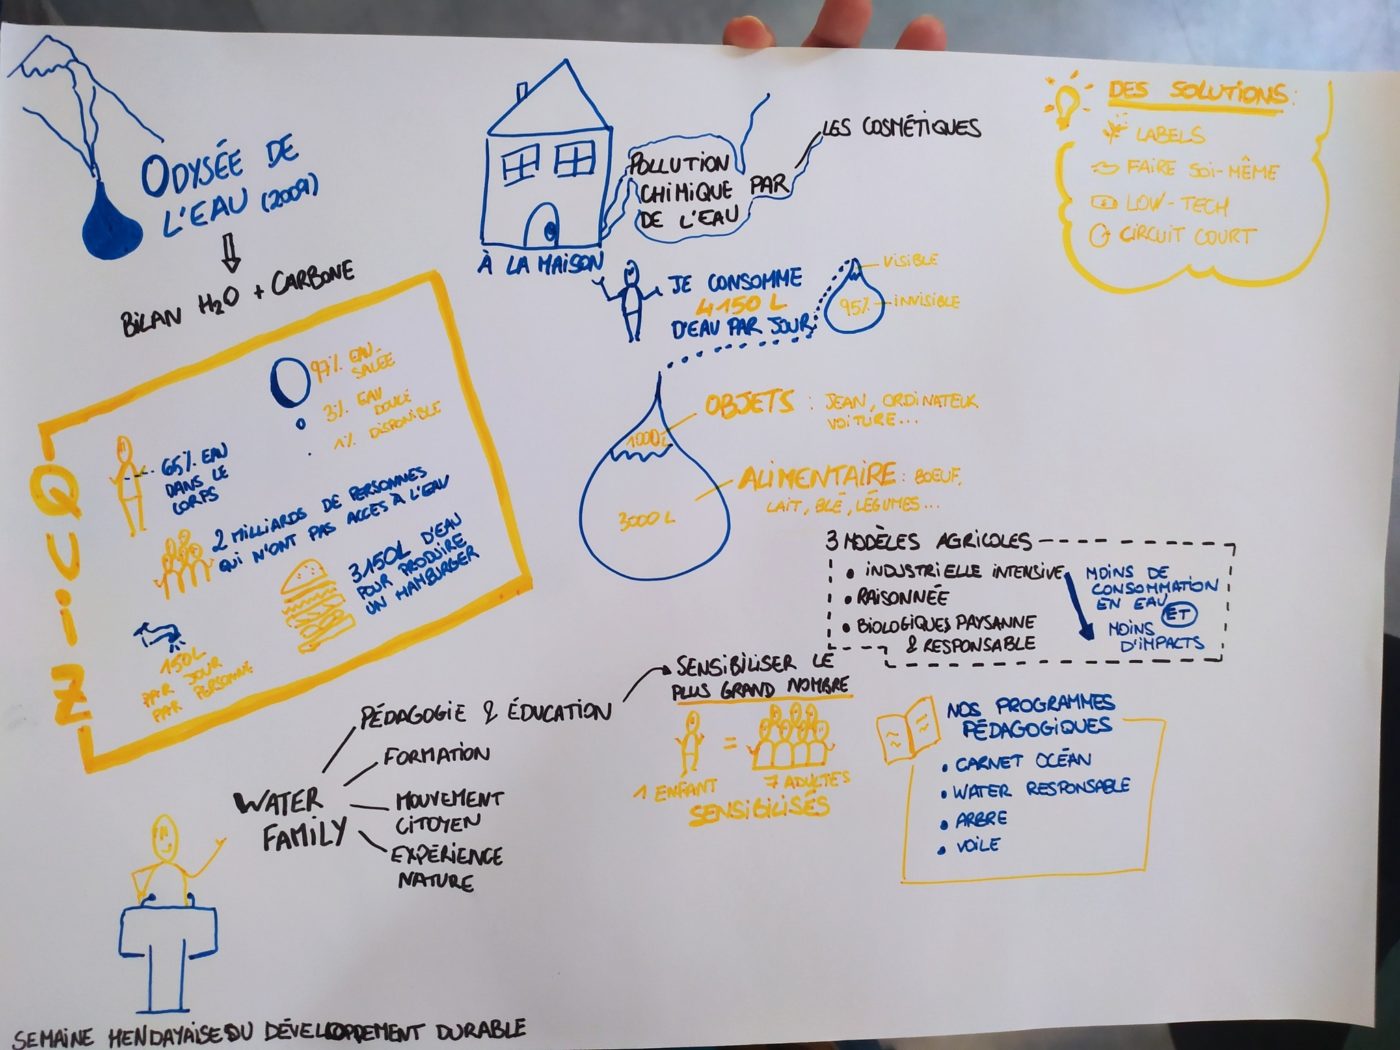 ODYSÉE DE
L'EAU (2009)
BILAN H₂O + CARBONE
QUIZ
97% EAU
SALÉE
3% EAU
DOUCE
1% DISPONIBLE
65% EAU
DANS LE
CORPS
2 MILLIARDS DE PERSONNES
QUI N'ONT PAS ACCÈS À L'EAU
3150L D'EAU
POUR PRODUIRE
UN HAMBURGER
150L
PAR JOUR
PAR PERSONNE
À LA MAISON
POLLUTION
CHIMIQUE PAR
DE L'EAU
LES COSMÉTIQUES
JE CONSOMME
4150 L
D'EAU PAR JOUR
VISIBLE
95% INVISIBLE
1000L
OBJETS : JEAN, ORDINATEUR
VOITURE...
3000L
ALIMENTAIRE : BOEUF,
LAIT, BLÉ, LÉGUMES...
DES SOLUTIONS :
LABELS
FAIRE SOI-MÊME
LOW-TECH
CIRCUIT COURT
3 MODÈLES AGRICOLES
• INDUSTRIELLE INTENSIVE
• RAISONNÉE
• BIOLOGIQUES PAYSANNE
& RESPONSABLE
MOINS DE
CONSOMMATION
EN EAU
ET
MOINS
D'IMPACTS
WATER
FAMILY
PÉDAGOGIE & ÉDUCATION
FORMATION
MOUVEMENT
CITOYEN
EXPÉRIENCE
NATURE
SENSIBILISER LE
PLUS GRAND NOMBRE
=
1 ENFANT 7 ADULTES
SENSIBILISÉS
NOS PROGRAMMES
PÉDAGOGIQUES
• CARNET OCÉAN
• WATER RESPONSABLE
• ARBRE
• VOILE
SEMAINE HENDAYAISE DU DÉVELOPPEMENT DURABLE